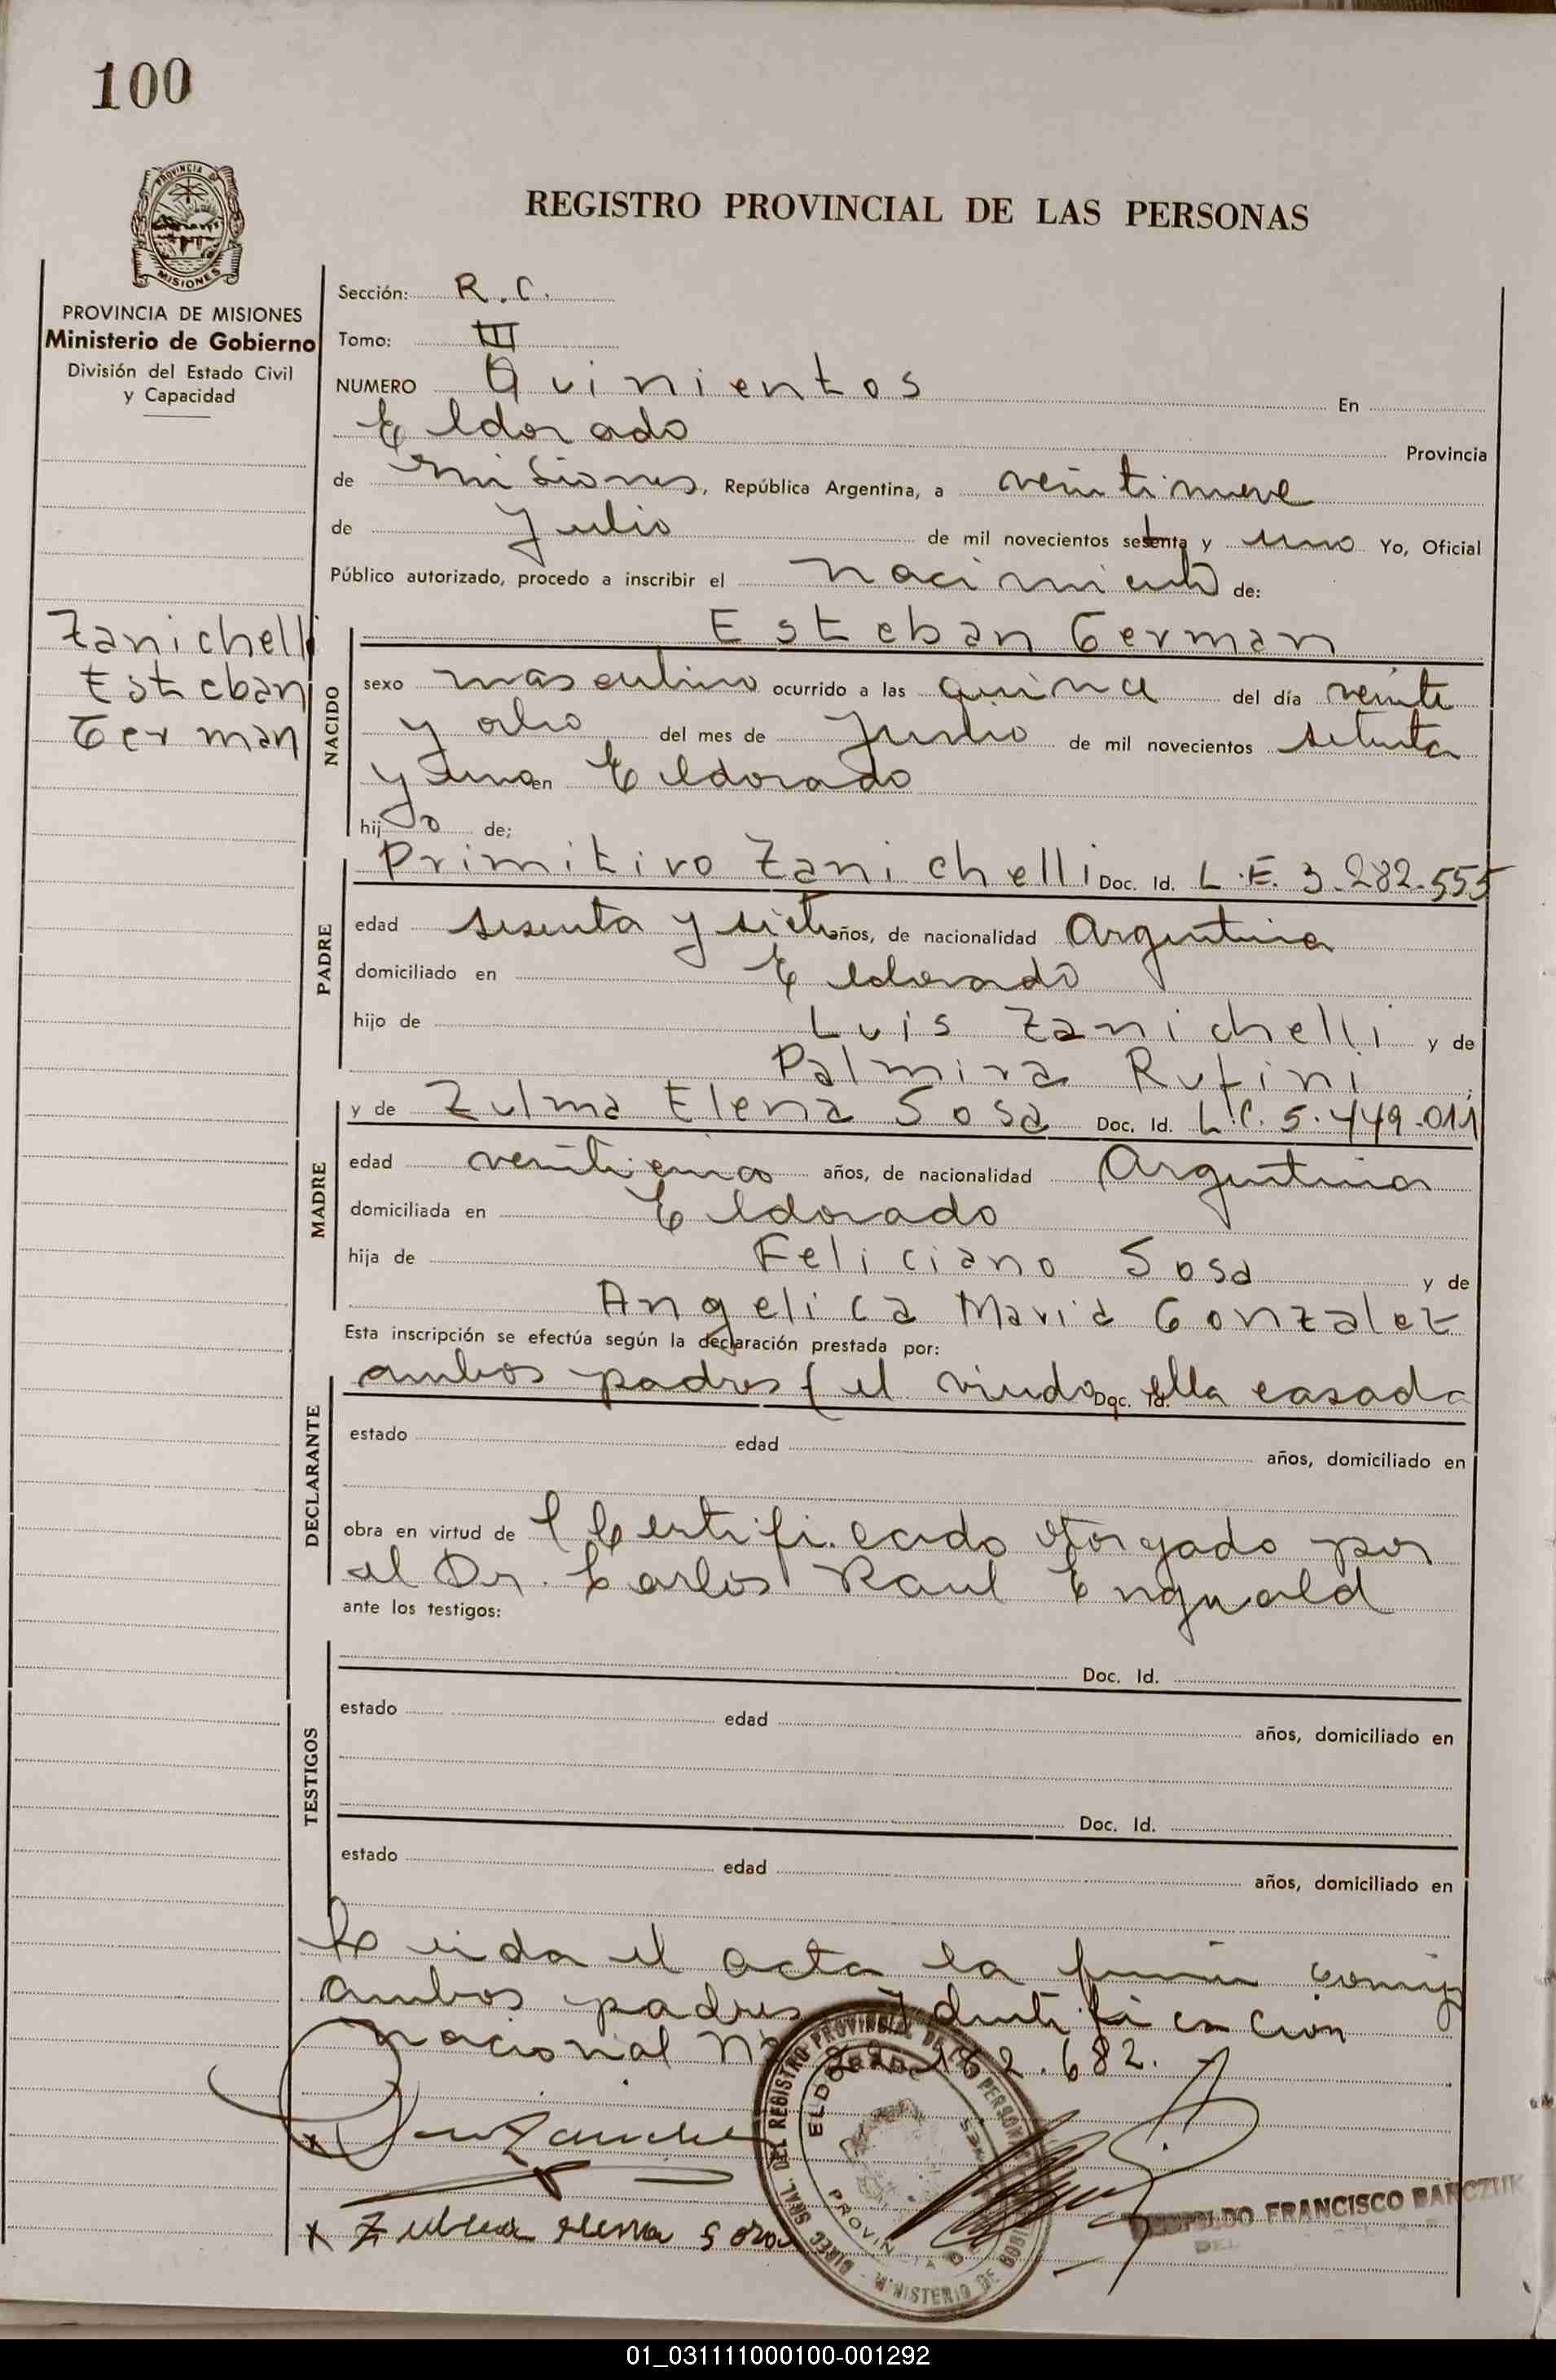 100
PROVINCIA DE
MISIONES
REGISTRO PROVINCIAL DE LAS PERSONAS
PROVINCIA DE MISIONES
Ministerio de Gobierno
División del Estado Civil
y Capacidad
Sección: R.C.
Tomo: III
NUMERO Quinientos En
Eldorado Provincia
de Misiones, República Argentina, a veintinueve
de Julio de mil novecientos setenta y uno Yo, Oficial
Público autorizado, procedo a inscribir el nacimiento de:
Zanichelli
Esteban
German
NACIDO
Esteban German
sexo masculino ocurrido a las quince del día veinte
y ocho del mes de Junio de mil novecientos setenta
y uno en Eldorado
hijo de;
PADRE
Primitivo Zanichelli Doc. Id. L.E. 3.282.555
edad sesenta y siete años, de nacionalidad Argentina
domiciliado en Eldorado
hijo de Luis Zanichelli y de
Palmira Rufini ;
MADRE
y de Zulma Elena Sosa Doc. Id. L.C. 5.449.011
edad veinticinco años, de nacionalidad Argentina
domiciliada en Eldorado
hija de Feliciano Sosa y de
Angelica Maria Gonzalez
Esta inscripción se efectúa según la declaración prestada por:
DECLARANTE
ambos padres (el viudo Doc. Id. ella casada
estado edad años, domiciliado en
obra en virtud de Certificado otorgado por
el Dr. Carlos Raul Engwald
ante los testigos:
TESTIGOS
Doc. Id.
estado edad años, domiciliado en
Doc. Id.
estado edad años, domiciliado en
Leida el acta la firman
ambos padres Identificacion
nacional Nº .682.
DIREC. GRAL. DEL REGISTRO PROVINCIAL DE PERSONAS
MINISTERIO DE GOBIER
ELDORADO
PROVINCIA D
x
x Zulma Elena Sosa
LEOPOLDO FRANCISCO BARCZUK
DEL
01_031111000100-001292